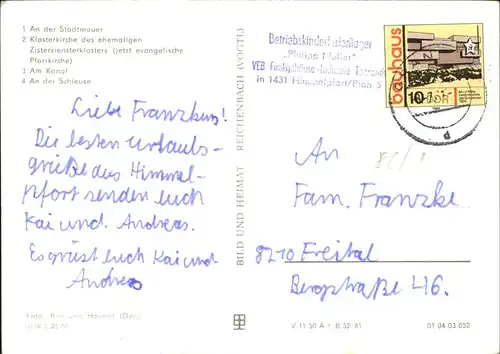 1 An der Stadtmauer
2 Klosterkirche des ehemaligen
Zisterziensterklosters (jetzt evangelische
Pfarrkirche)
3 Am Kanal
4 An der Schleuse
Liebe Franzkens!
Die besten Urlaubs-
grüße aus Himmel-
pfort senden euch
Kai und Andreas.
Es grüst euch Kai und
Andreas
Foto: Bild und Heimat
BILD UND HEIMAT REICHENBACH (VOGTL)
Betriebskinderferienlager
"Philipp Müller"
VEB
in 1431 Himmelpfort/Pian 6
bauhaus
10 DDR
An
Fam. Franzke
8210 Freital
Bergstraße 46.
V 11 50 A 1 B 52/81
01 04 03 052